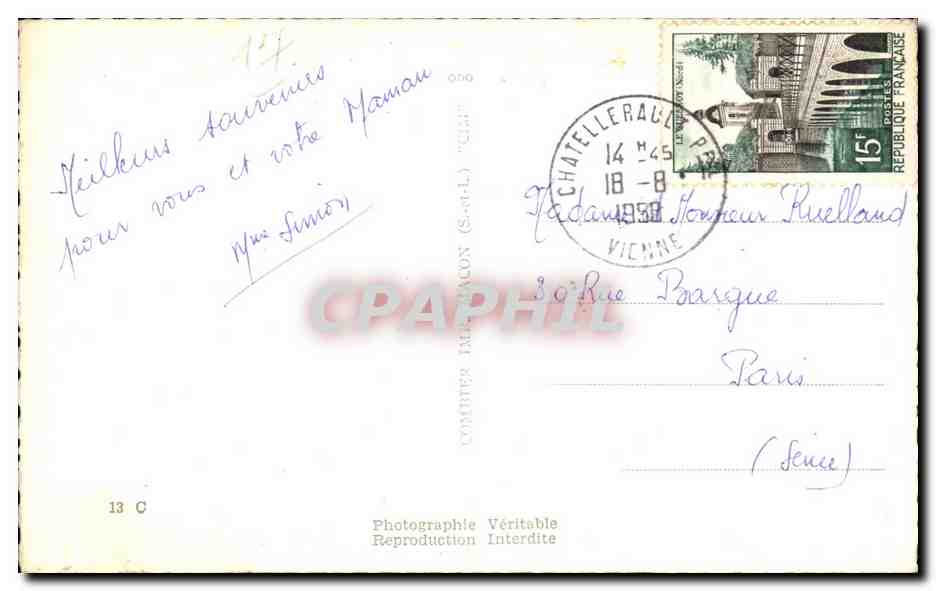 157
Meilleurs souvenirs
pour vous et votre Maman
Mme Simon
13 C
COMBIER IMP. MACON (S.-et-L.) "CIM"
Photographie Véritable
Reproduction Interdite
CPAPHIL
CHATELLERAULT PPAL
14 H 45
18 - 8
1958
VIENNE
LE QUESNOY (Nord)
15F
POSTES
REPUBLIQUE FRANÇAISE
Madame Monsieur Ruelland
30 Rue Bargue
Paris
(Seine)